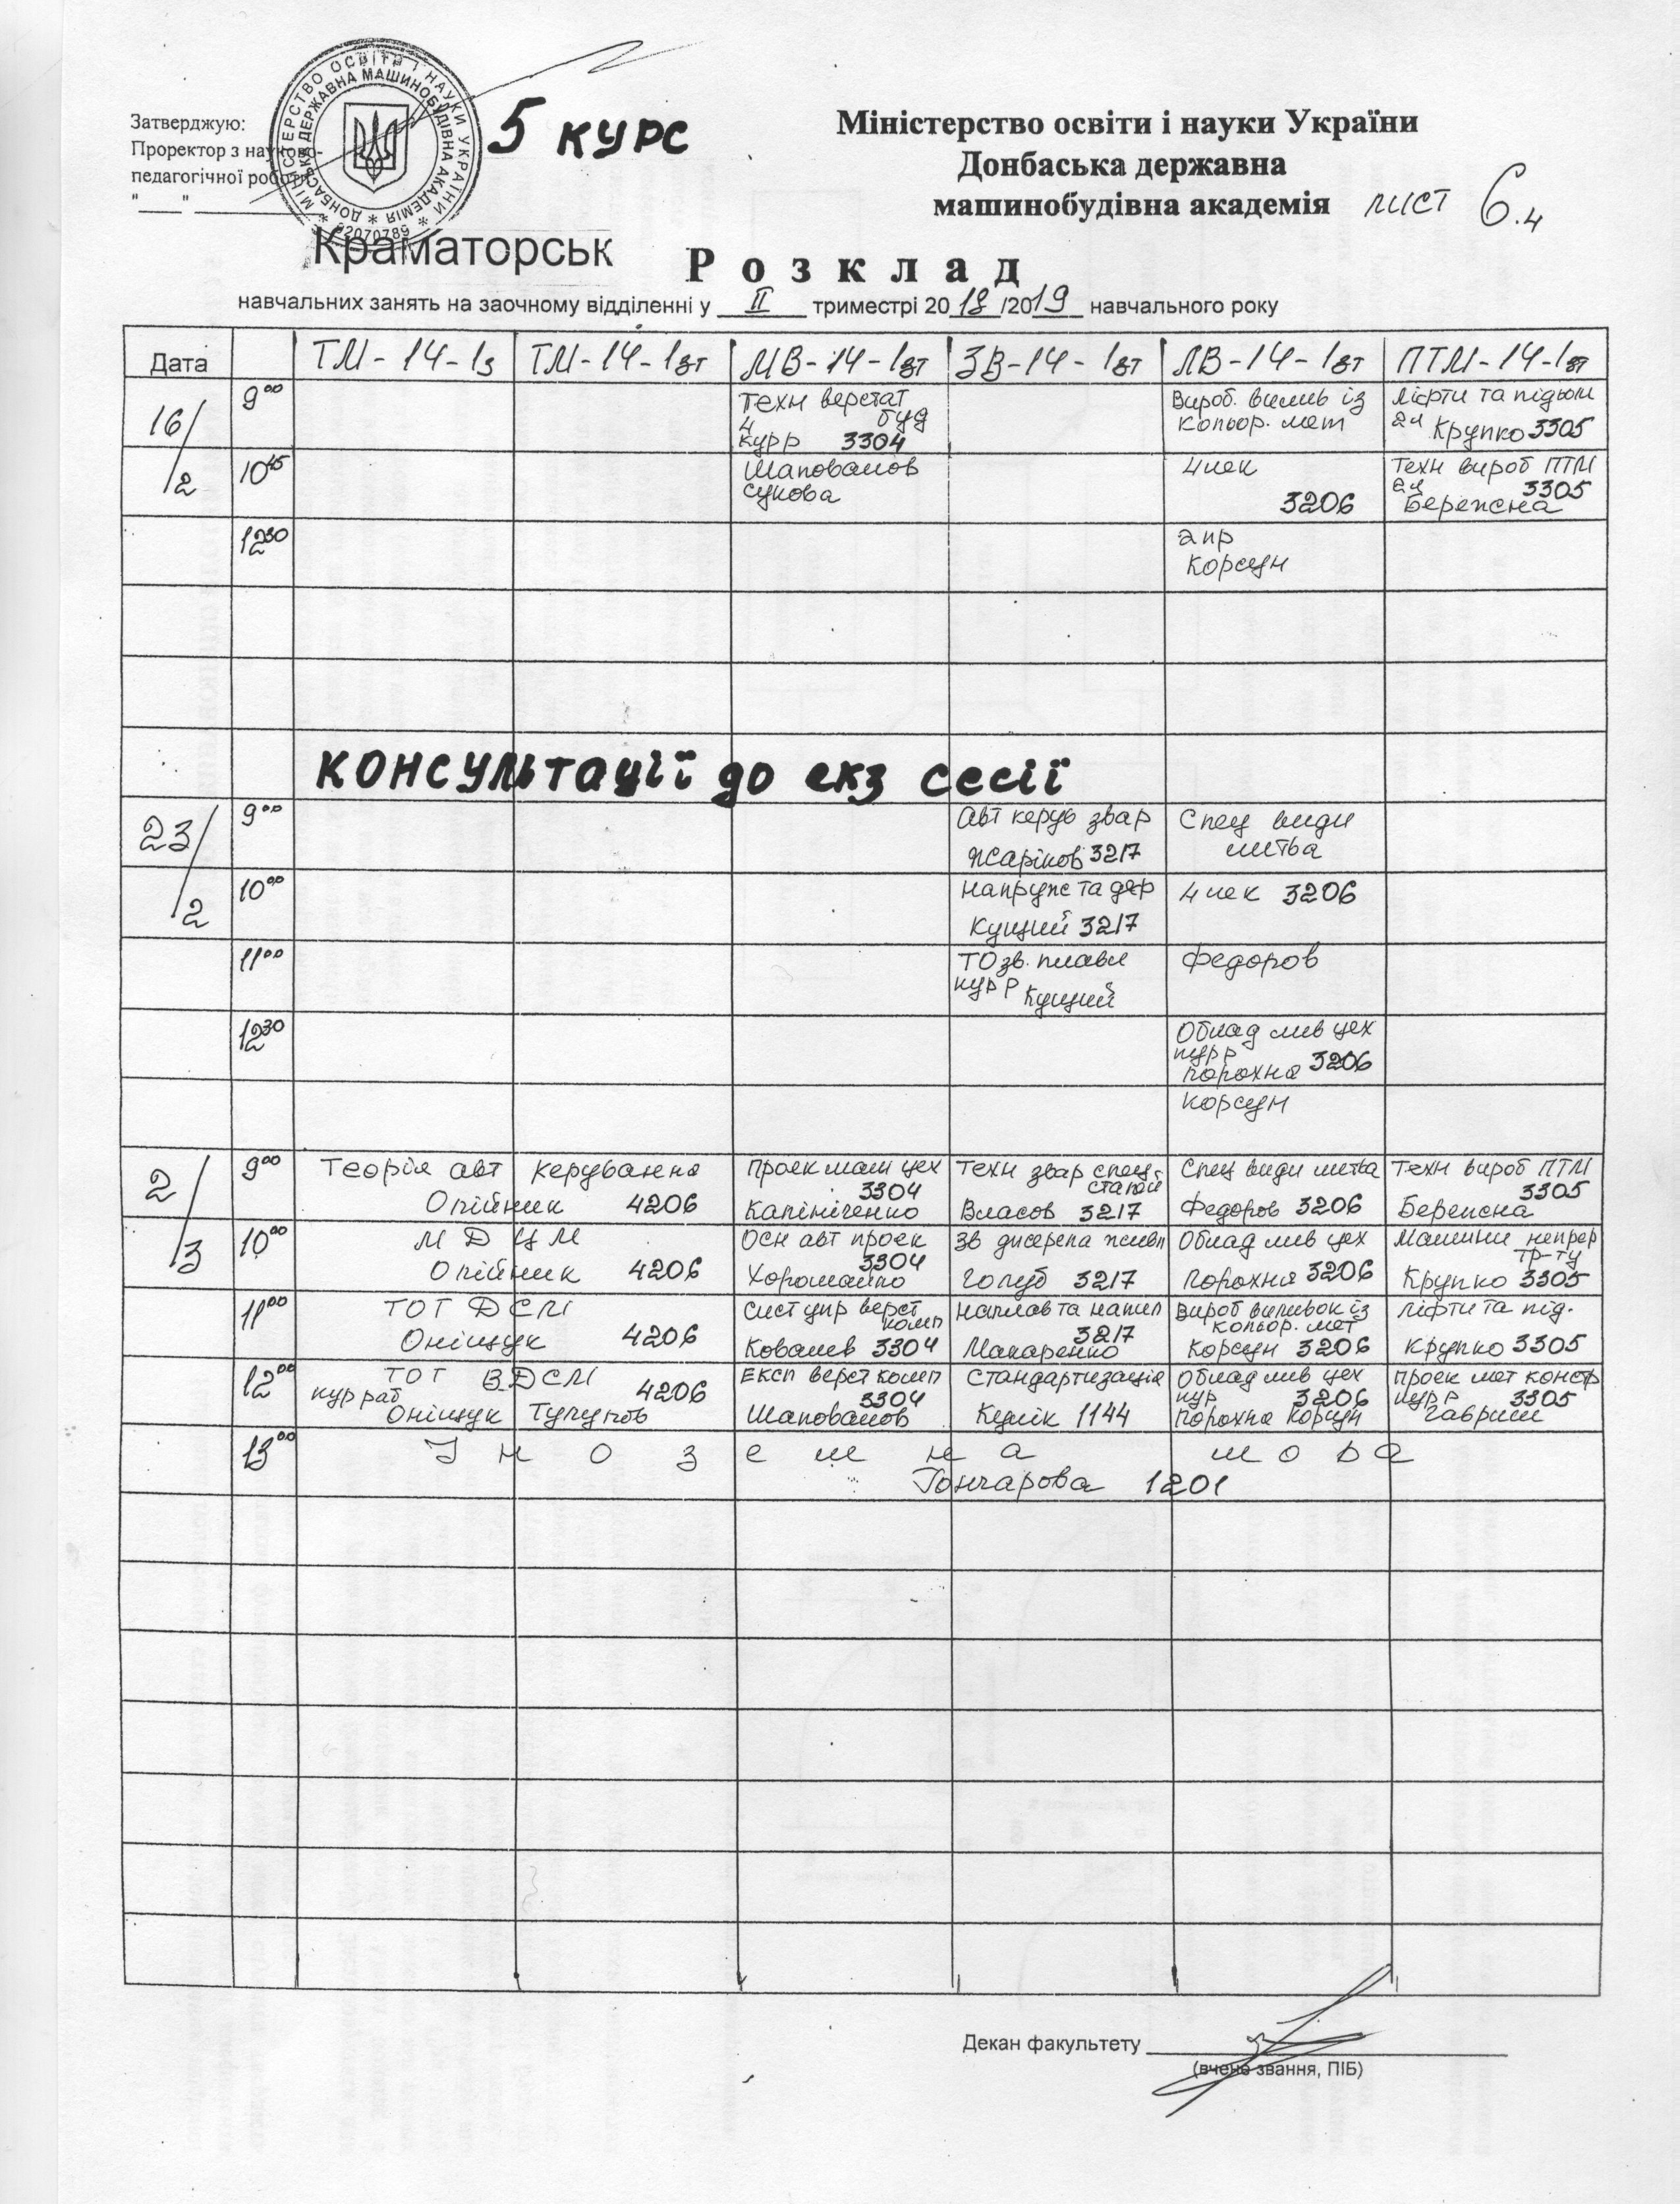 Затверджую:
Проректор з науково-
педагогічної роботи
"____" __________
МІНІСТЕРСТВО ОСВІТИ І НАУКИ УКРАЇНИ
ДОНБАСЬКА ДЕРЖАВНА МАШИНОБУДІВНА АКАДЕМІЯ
02070789
5 курс
Міністерство освіти і науки України
Донбаська державна
машинобудівна академія лист 6.4
Краматорськ
Розклад
навчальних занять на заочному відділенні у II триместрі 2018/2019 навчального року
Дата ТМ-14-1з ТМ-14-1зт МВ-14-1зт ЗВ-14-1зт ЛВ-14-1зт ПТМ-14-1зт
16/2 9 00 Техн верстат буд 4 курр 3304 Вироб. вилив із кольор. мет Ліфти та підйом 2ч Крупко 3305
10 45 Шаповалов сукова 4 лек 3206 Техн вироб ПТМ 2ч 3305 Бережна
12 30 2 пр Корсун
Консультації до екз сесії
23/2 9 00 Авт керув звар Жаріков 3217 Спец види литва
10 00 Напруж та деф Кущий 3217 4 лек 3206
11 00 ТО зв. плавл курр Кущий Федоров
12 30 Облад лив цех курр Порохня 3206
Корсун
2/3 9 00 Теорія авт керування Олійник 4206 Проек маш цех 3304 Калініченко Техн звар спец. сталей Власов 3217 Спец види литва Федоров 3206 Техн вироб ПТМ 3305 Бережна
10 00 МДЦМ Олійник 4206 Осн авт проек 3304 Хорошайло Зв джерела живл Голуб 3217 Облад лив цех Порохня 3206 Машини непрер тр-ту Крупко 3305
11 00 ТОТ ДСМ Оніщук 4206 Сист упр верст комп Ковалев 3304 Наплав та напил 3217 Макаренко Вироб виливок із кольор. мет Корсун 3206 Ліфти та під. Крупко 3305
12 00 ТОТ ВДСМ кур раб 4206 Оніщук Тулупов Експ верст комп 3304 Шаповалов Стандартизація Кулік 1144 Облад лив цех кур 3206 Порохня Корсун Проек мет констр курр 3305 Гавриш
13 00 Іноземна мова
Гончарова 1201
Декан факультету
(вчене звання, ПІБ)